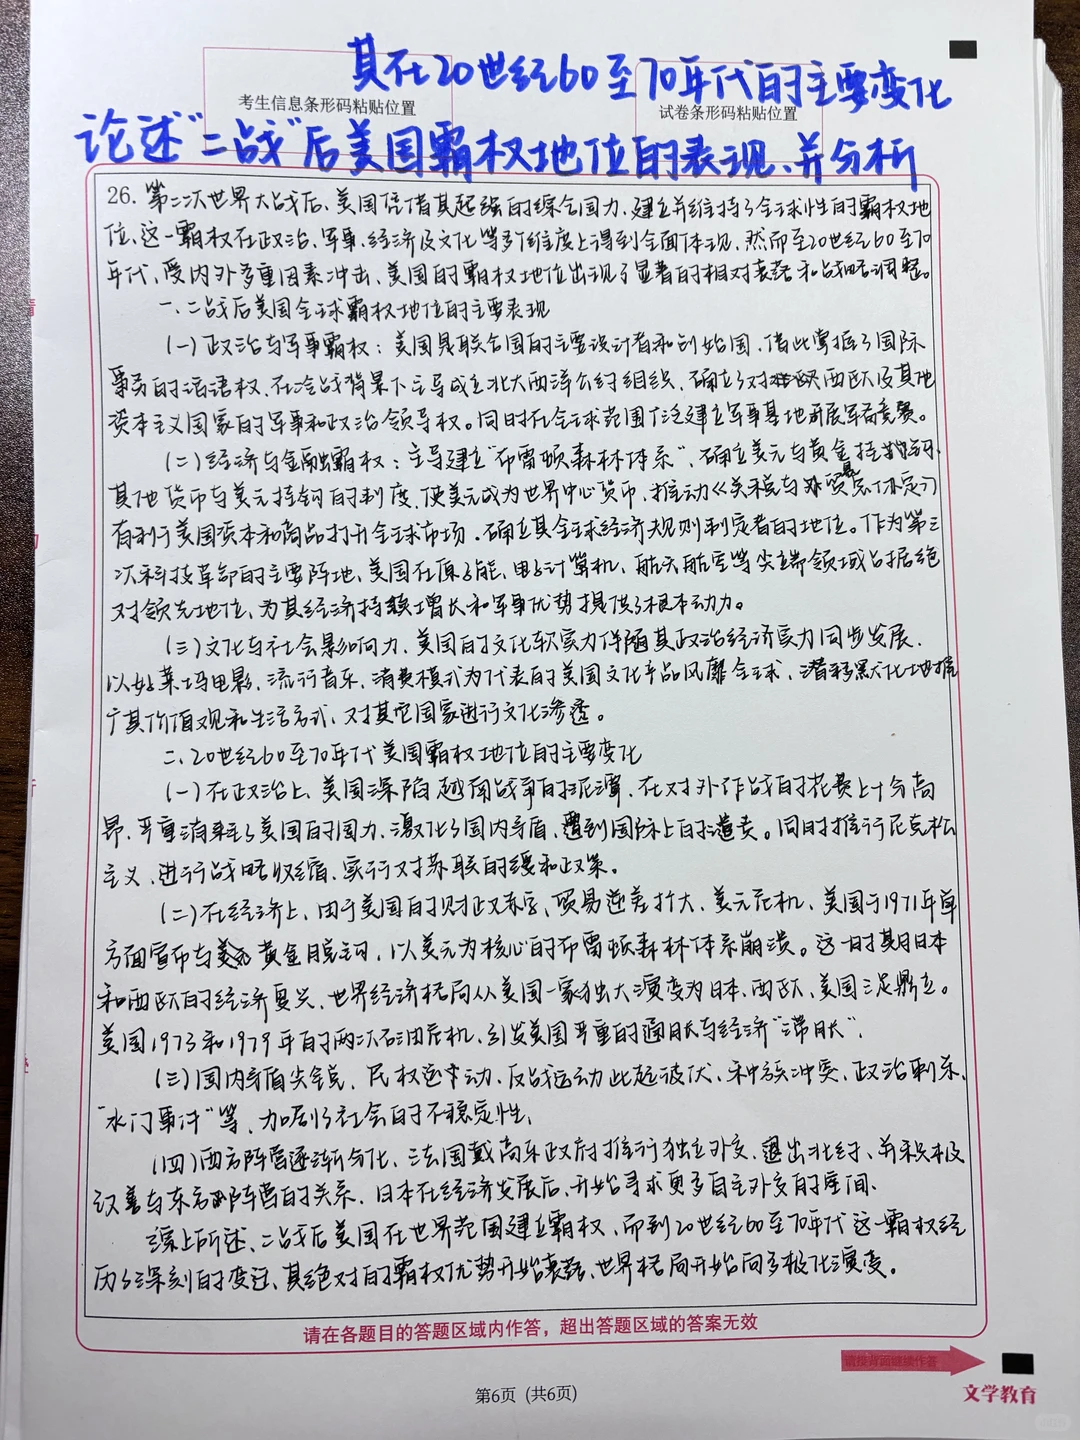 其在20世纪60至70年代的主要变化
考生信息条形码粘贴位置
试卷条形码粘贴位置
论述"二战"后美国霸权地位的表现、并分析
26. 第二次世界大战后、美国凭借其超强的综合国力、建立并维持了全球性的霸权地
位、这一霸权在政治、军事、经济及文化等多个维度上得到全面体现、然而至20世纪60至70
年代、受内外多重因素冲击、美国的霸权地位出现了显著的相对衰落和战略调整。
一、二战后美国全球霸权地位的主要表现
(一)政治与军事霸权：美国是联合国的主要设计者和创始国、借此掌握了国际
事务的话语权、在冷战背景下主导成立北大西洋公约组织、确立了对西欧及其他
资本主义国家的军事和政治领导权。同时在全球范围广泛建立军事基地开展军备竞赛。
(二)经济与金融霸权：主导建立"布雷顿森林体系"、确立美元与黄金挂钩、
其他货币与美元挂钩的制度、使美元成为世界中心货币、推动《关税与贸易总协定》
有利于美国资本和商品打开全球市场、确立其全球经济规则制定者的地位。作为第三
次科技革命的主要阵地、美国在原子能、电子计算机、航天航空等尖端领域占据绝
对领先地位、为其经济持续增长和军事优势提供了根本动力。
(三)文化与社会影响力、美国的文化软实力伴随其政治经济实力同步发展、
以好莱坞电影、流行音乐、消费模式为代表的美国文化产品风靡全球、潜移默化地推
广其价值观和生活方式、对其它国家进行文化渗透。
二、20世纪60至70年代美国霸权地位的主要变化
(一)在政治上、美国深陷越南战争的泥潭、在对外作战的花费上十分高
昂、严重消耗了美国的国力、激化了国内矛盾、遭到国际上的谴责。同时推行尼克松
主义、进行战略收缩、实行对苏联的缓和政策。
(二)在经济上、由于美国的财政赤字、贸易逆差扩大、美元危机、美国于1971年单
方面宣布与黄金脱钩、以美元为核心的布雷顿森林体系崩溃。这一时期日本
和西欧的经济复兴、世界经济格局从美国一家独大演变为日本、西欧、美国三足鼎立。
美国1973和1979年的两次石油危机、引发美国严重的通胀与经济"滞胀"、
(三)国内矛盾尖锐、民权运动、反战运动此起彼伏、种族冲突、政治刺杀、
"水门事件"等、加剧了社会的不稳定性、
(四)西方阵营逐渐分化、法国戴高乐政府推行独立外交、退出北约、并积极
改善与东方阵营的关系、日本在经济发展后、开始寻求更多自主外交的空间、
综上所述、二战后美国在世界范围建立霸权、而到20世纪60至70年代这一霸权经
历了深刻的变迁、其绝对的霸权优势开始衰落、世界格局开始向多极化演变。
请在各题目的答题区域内作答，超出答题区域的答案无效
请按背面继续作答
第6页（共6页）
文学教育